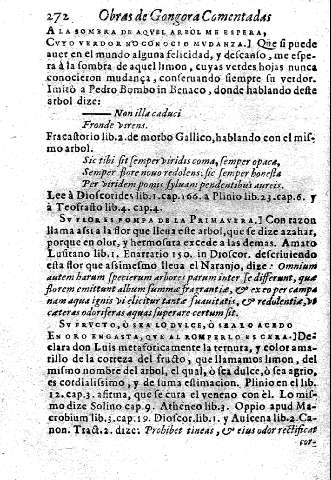 272 Obras de Gongora Comentadas
A LA SOMBRA DE AQVEL ARBOL ME ESPERA,
CVYO VERDOR NO CONOCIO MVDANZA.] Que si puede
auer en el mundo alguna felicidad, y descanso, me espe-
ra à la sombra de aquel limon, cuyas verdes hojas nunca
conocieron mudança, conseruando siempre su verdor.
Imitò a Pedro Bombo in Benaco, donde hablando deste
arbol dize:
—— Non illa caduci
Fronde virens.
Fracastorio lib. 2. de morbo Gallico, hablando con el mis-
mo arbol.
Sic tibi sit semper viridis coma, semper opaca,
Semper flore nouo redolens. sic semper honesta
Per viridem pomis syluam pendentibus aureis.
Lee à Dioscorides lib. 1. cap. 166. a Plinio lib. 23. cap. 6. y
à Teofrasto lib. 4. cap. 4.
SV FLOR ES POMPA DE LA PRIMAVERA.] Con razon
llama assi a la flor que lleua este arbol, que se dize azahar,
porque en olor, y hermosura excede a las demas. Amato
Lusitano lib. 1. Enarratio 150. in Dioscor. descriuiendo
esta flor que assimesmo lleua el Naranjo, dize: Omnium
autem harum specierum arbores parum inter se differunt, quæ
florem emittunt album summæ fragrantiæ, & ex eo per campa
nam aqua ignis vi elicitur tantæ suauitatis, & redolentiæ, vt
cæteras odoriferas aquas superare certum sit.
SV FRVCTO, Ò SEA LO DVLCE, Ò SEA LO ACEDO
EN ORO ENGASTA, QVE AL ROMPERLO ES CERA.] De-
clara don Luis metaforicamente la ternura, y color ama-
rillo de la corteza del fructo, que llamamos limon, del
mismo nombre del arbol, el qual, ò sea dulce, ò sea agrio,
es cordialissimo, y de suma estimacion. Plinio en el lib.
12. cap. 3. afirma, que se cura el veneno con èl. Lo mis-
mo dize Solino cap. 9. Atheneo lib. 3. Oppio apud Ma-
crobium lib. 3. cap. 19. Virgilio 2. Geor. y Auicena lib. 2. Ca-
non. Tract. 2. dize: Prohibet tineas, & eius odor rectificat
cor-